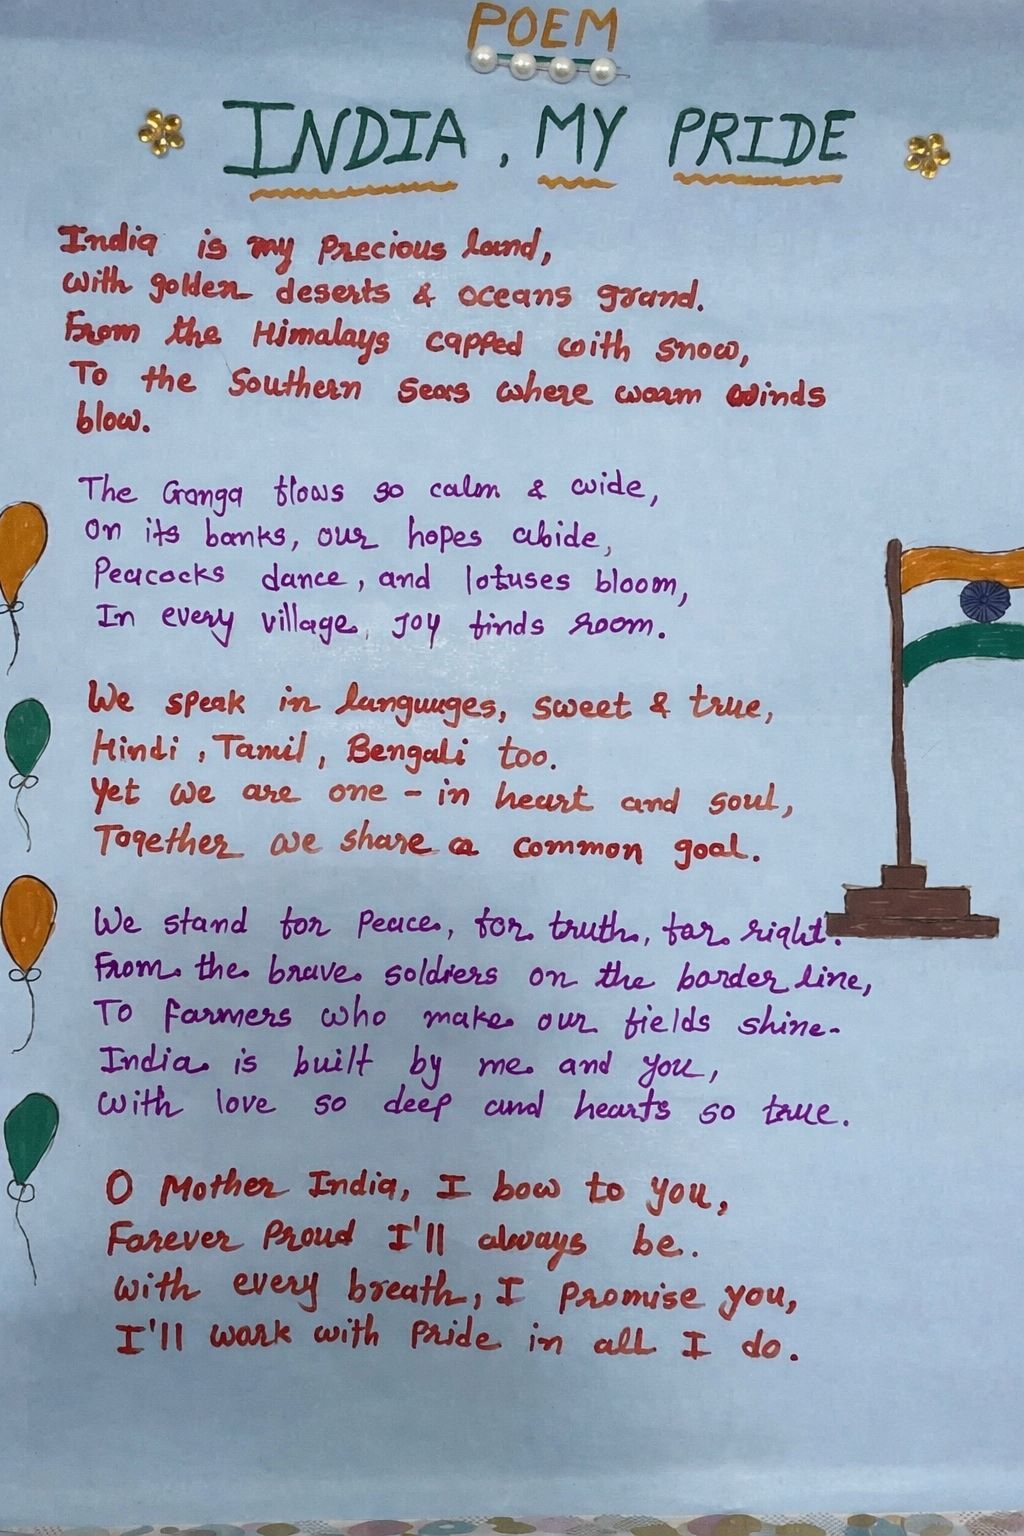 POEM
INDIA, MY PRIDE
India is my Precious land,
with golden deserts & oceans grand.
From the Himalays capped with snow,
To the Southern Seas where warm winds
blow.
The Ganga flows so calm & wide,
On its banks, our hopes abide,
Peacocks dance, and lotuses bloom,
In every village, joy finds room.
We speak in languages, sweet & true,
Hindi, Tamil, Bengali too.
Yet we are one - in heart and soul,
Together we share a common goal.
We stand for Peace, for truth, for right.
From the brave soldiers on the border line,
To farmers who make our fields shine-
India is built by me and you,
With love so deep and hearts so true.
O Mother India, I bow to you,
Forever Proud I'll always be.
With every breath, I promise you,
I'll work with Pride in all I do.